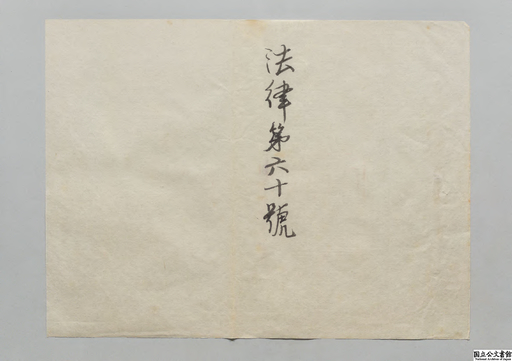 法律第六十號
国立公文書館
National Archives of Japan